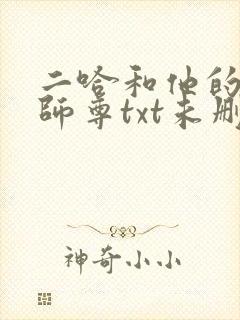 二哈和他的
師尊txt未刪
神奇小小